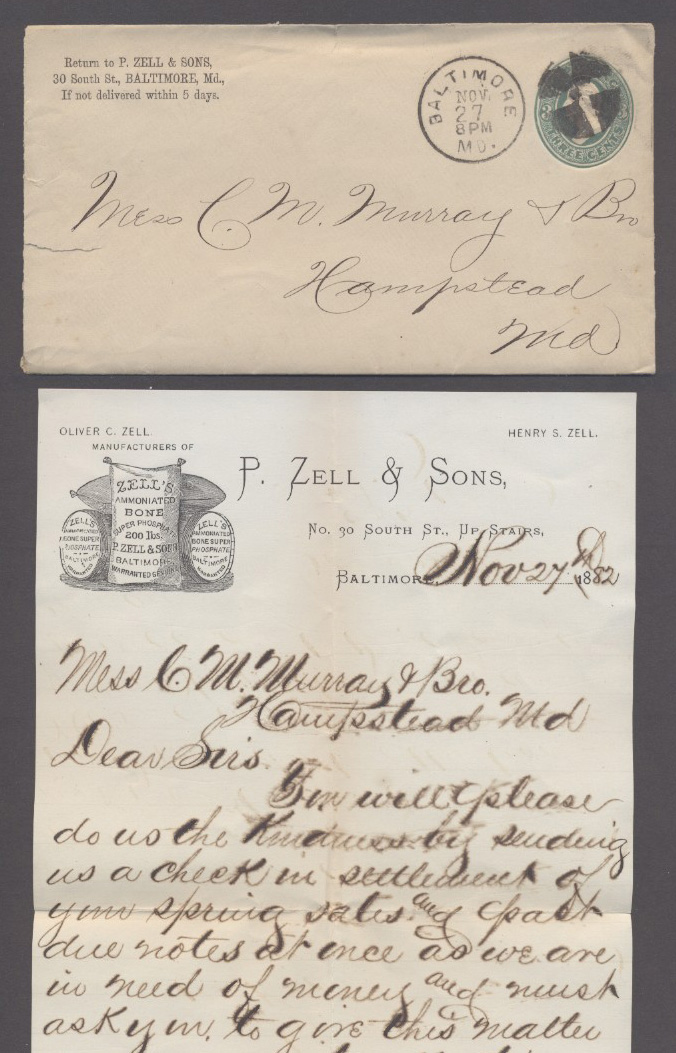 Return to P. ZELL & SONS,
30 South St., BALTIMORE, Md.,
If not delivered within 5 days.
BALTIMORE
NOV.
27
8PM
MD.
THREE CENTS
Mess C. M. Murray & Bro
Hampstead
Md
OLIVER C. ZELL.
HENRY S. ZELL.
MANUFACTURERS OF
P. ZELL & SONS,
No. 30 SOUTH ST., UP STAIRS,
BALTIMORE, Nov 27th 1882
ZELL'S
AMMONIATED
BONE
SUPER PHOSPHATE
200 lbs.
P. ZELL & SONS
BALTIMORE
WARRANTED GENUINE
ZELL'S
AMMONIATED
BONE SUPER
PHOSPHATE
BALTIMORE
WARRANTED
ZELL'S
AMMONIATED
BONE SUPER
PHOSPHATE
BALTIMORE
WARRANTED
Mess C. M. Murray & Bro.
Hampstead Md
Dear Sirs.
You will please
do us the kindness by sending
us a check in settlement of
your spring sales and past
due notes at once as we are
in need of money and must
ask you to give this matter